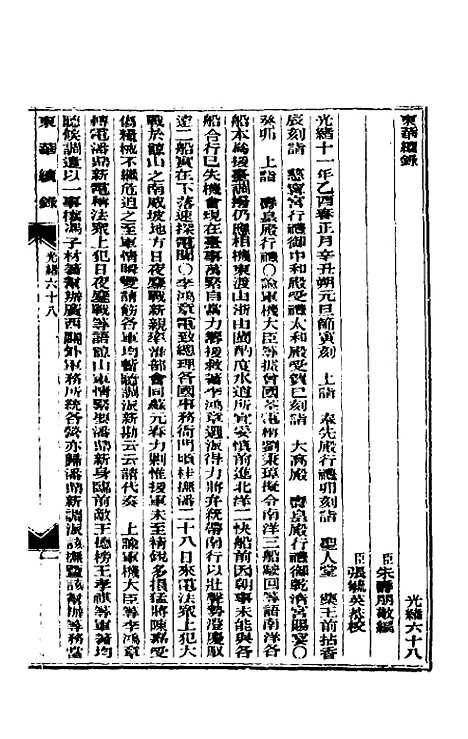 東華續錄
光緒六十八
臣朱壽朋敬編
臣張毓英恭校
光緒十一年乙酉春正月辛丑朔元旦節寅刻 上詣 奉先殿行禮卯刻詣 聖人堂 藥王前拈香
辰刻詣 慈寧宮行禮御中和殿受禮太和殿受賀巳刻詣 大高殿 壽皇殿行禮御乾清宮賜宴○
癸卯 上詣 壽皇殿行禮○諭軍機大臣等據曾國荃電稱劉秉璋擬令南洋三船駛回等語南洋各
船本為援臺調撥仍應相機東渡山浙山閩酌度水道所宜妥慎前進北洋二快船前因朝事未能與各
船合行已失機會現在臺事萬緊自當力籌援救著李鴻章遴派得力將弁統帶南行以壯聲勢澄慶馭
遠二船實在下落速探電聞○李鴻章電致總理各國事務衙門頃桂撫潘二十八日來電法眾上犯大
戰於諒山之南威坡地方日夜鏖戰新親率淮部會同蘇元春力剿惟援軍未至精銳多損猛將陳嘉受
傷糧械不繼危迫之至軍情瞬變請飭各軍均暫聽調派新勛云云請代奏 上諭軍機大臣等李鴻章
轉電潘鼎新電稱法眾上犯日夜鏖戰等語諒山軍情緊要潘鼎新身臨前敵王德榜王孝祺等軍著均
聽候調遣以一事權馮子材著幫辦廣西關外軍務所統各營亦歸潘鼎新調派該撫暨該幫辦等務當
東華續錄
光緒六十八
一